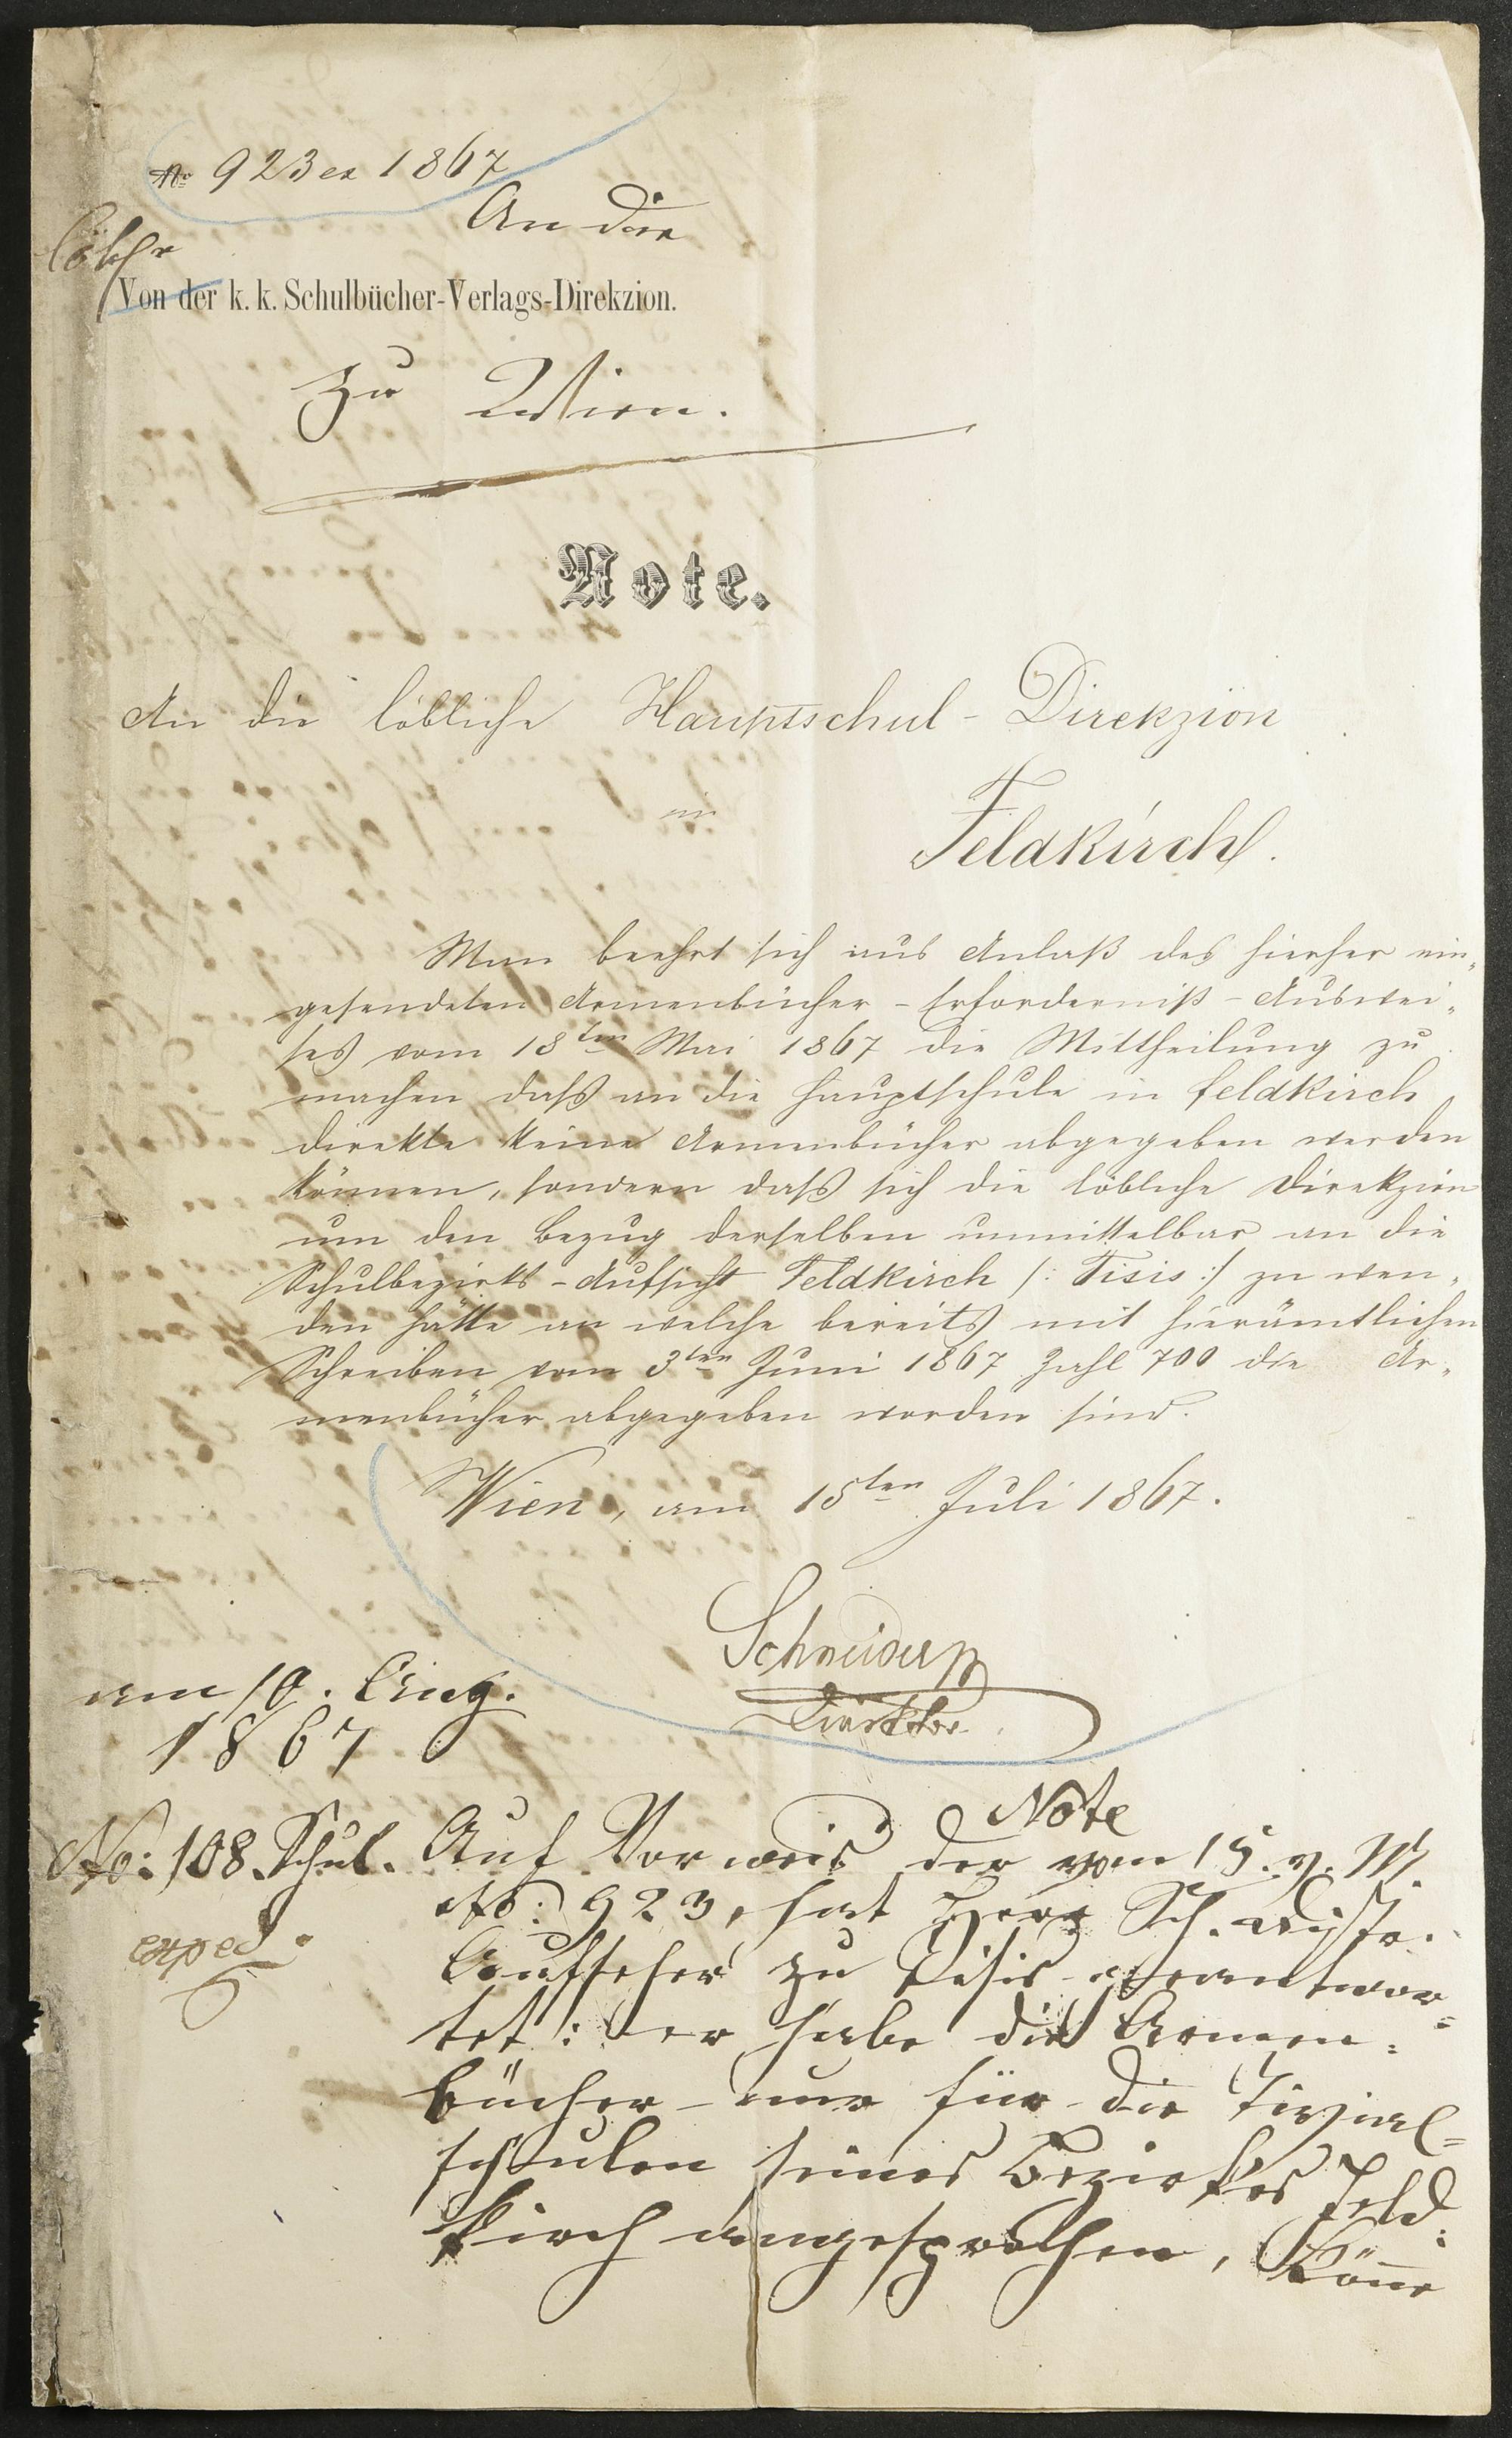 No 923 ex 1867
An die
Löbl.
Von der k. k. Schulbücher-Verlags-Direkzion.
zu Wien.
Note.
An die löbliche Hauptschul-Direkzion
in
Feldkirch.
Man beehrt sich aus Anlaß des hierher ein„
gesendeten Armenbücher-Erforderniß-Auswei„
ses vom 18ten Mai 1867 die Mittheilung zu
machen daß an die Hauptschule in Feldkirch
direkte keine Armenbücher abgegeben werden
können, sondern daß sich die löbliche Direkzion
um den Bezug derselben unmittelbar an die
Schulbezirks-Aufsicht Feldkirch /: Tisis :/ zu wen„
den hätte an welche bereits mit hierämtlichen
Schreiben vom 3ten Juni 1867 Zahl 700 die Ar„
menbücher abgegeben worden sind.
Wien, am 15ten Juli 1867.
Schneider
Direktor
am 10. Aug.
1867
Note
No: 108. Schul. Auf Vorweis der vom 15. v. M.
No: 923, hat Herr Sch. Distr.
exped.
Aufseher zu Tisis geantwor=
tet: er habe die Armen=
bücher nur für die Trivial=
schulen seines Bezirkes Feld=
kirch angesprochen, könne